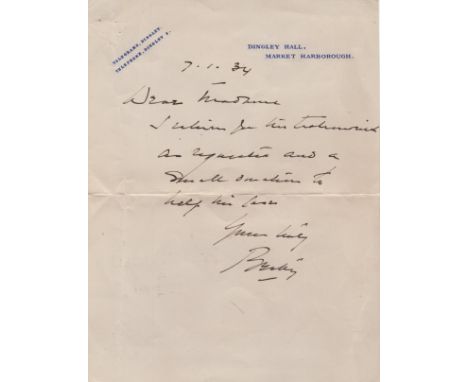 TELEGRAMS, DINGLEY.
TELEPHONE, DINGLEY 1.
DINGLEY HALL,
MARKET HARBOROUGH.
7.1.34
Dear Madame
I return you this
as requested and a
small donation to
help his case
Yours truly
Beatty